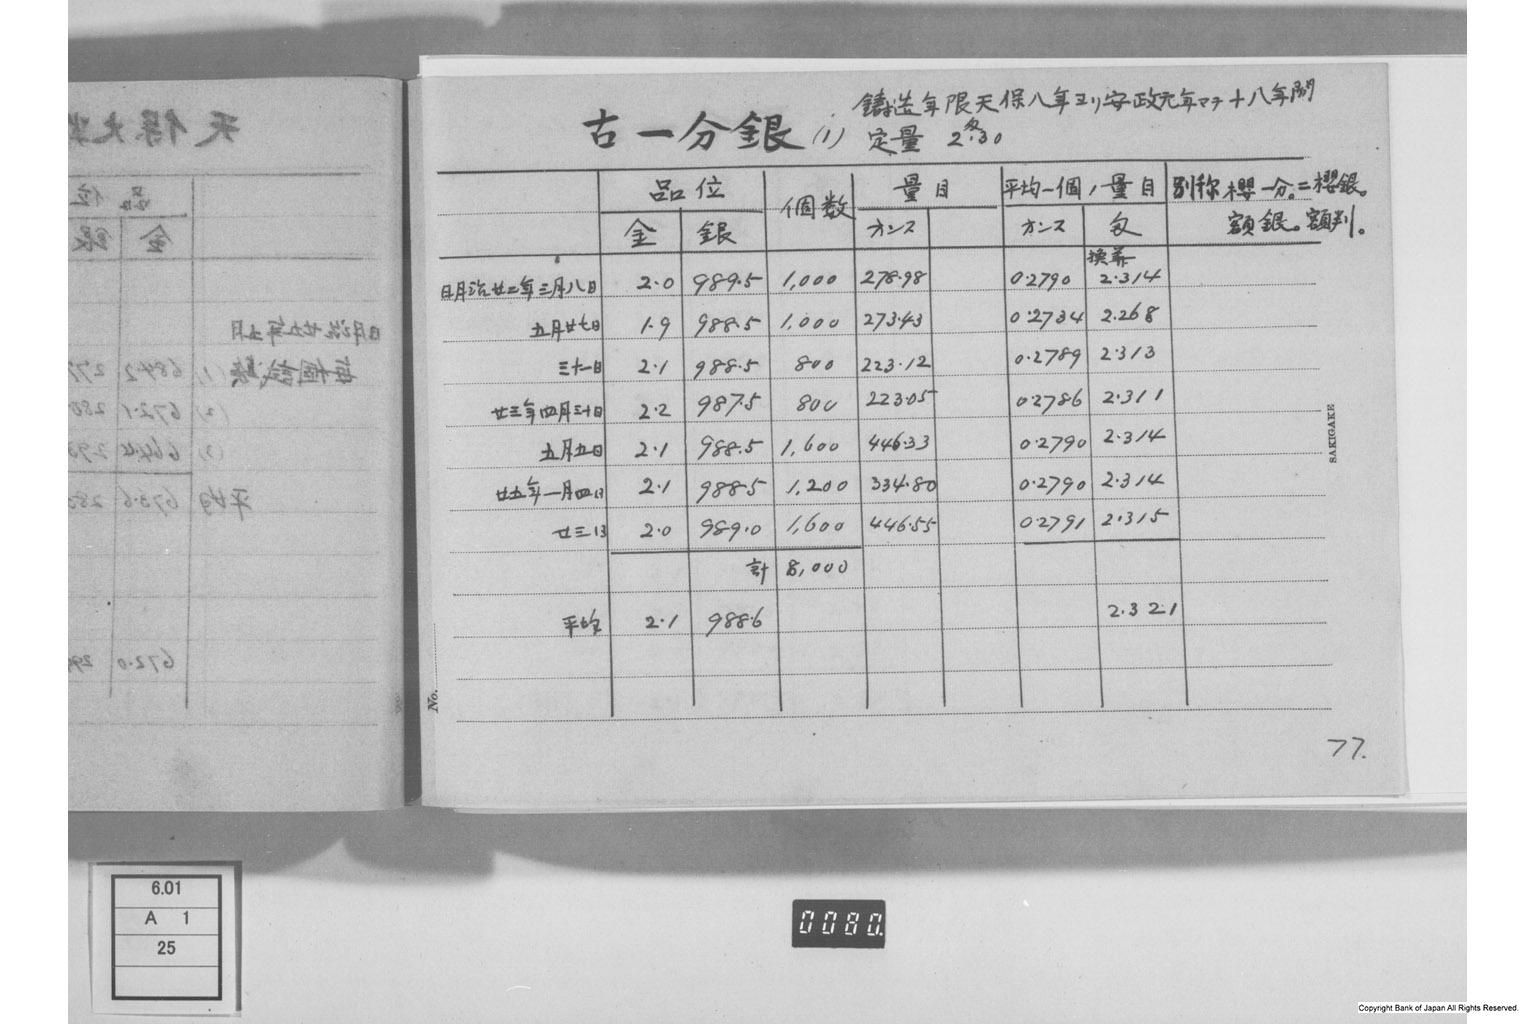 鋳造年限天保八年ヨリ安政元年マデ十八年間
古一分銀 (1) 定量 2匁.30
品位 個数 量目 平均一個ノ量目 別称 櫻一分。二櫻銀。
金 銀 オンス オンス 匁 額銀。額判。
換算
明治廿二年三月八日 2.0 989.5 1,000 278.98 0.2790 2.314
五月廿七日 1.9 988.5 1,000 273.43 0.2734 2.268
三十一日 2.1 988.5 800 223.12 0.2789 2.313
廿三年四月三十日 2.2 987.5 800 223.05 0.2786 2.311
五月五日 2.1 988.5 1,600 446.33 0.2790 2.314
廿五年一月四日 2.1 988.5 1,200 334.80 0.2790 2.314
廿三日 2.0 989.0 1,600 446.55 0.2791 2.315
計 8,000
平均 2.1 988.6 2.321
No.
SAKIGAKE
77.
6.01
A 1
25
0080.
Copyright Bank of Japan All Rights Reserved.